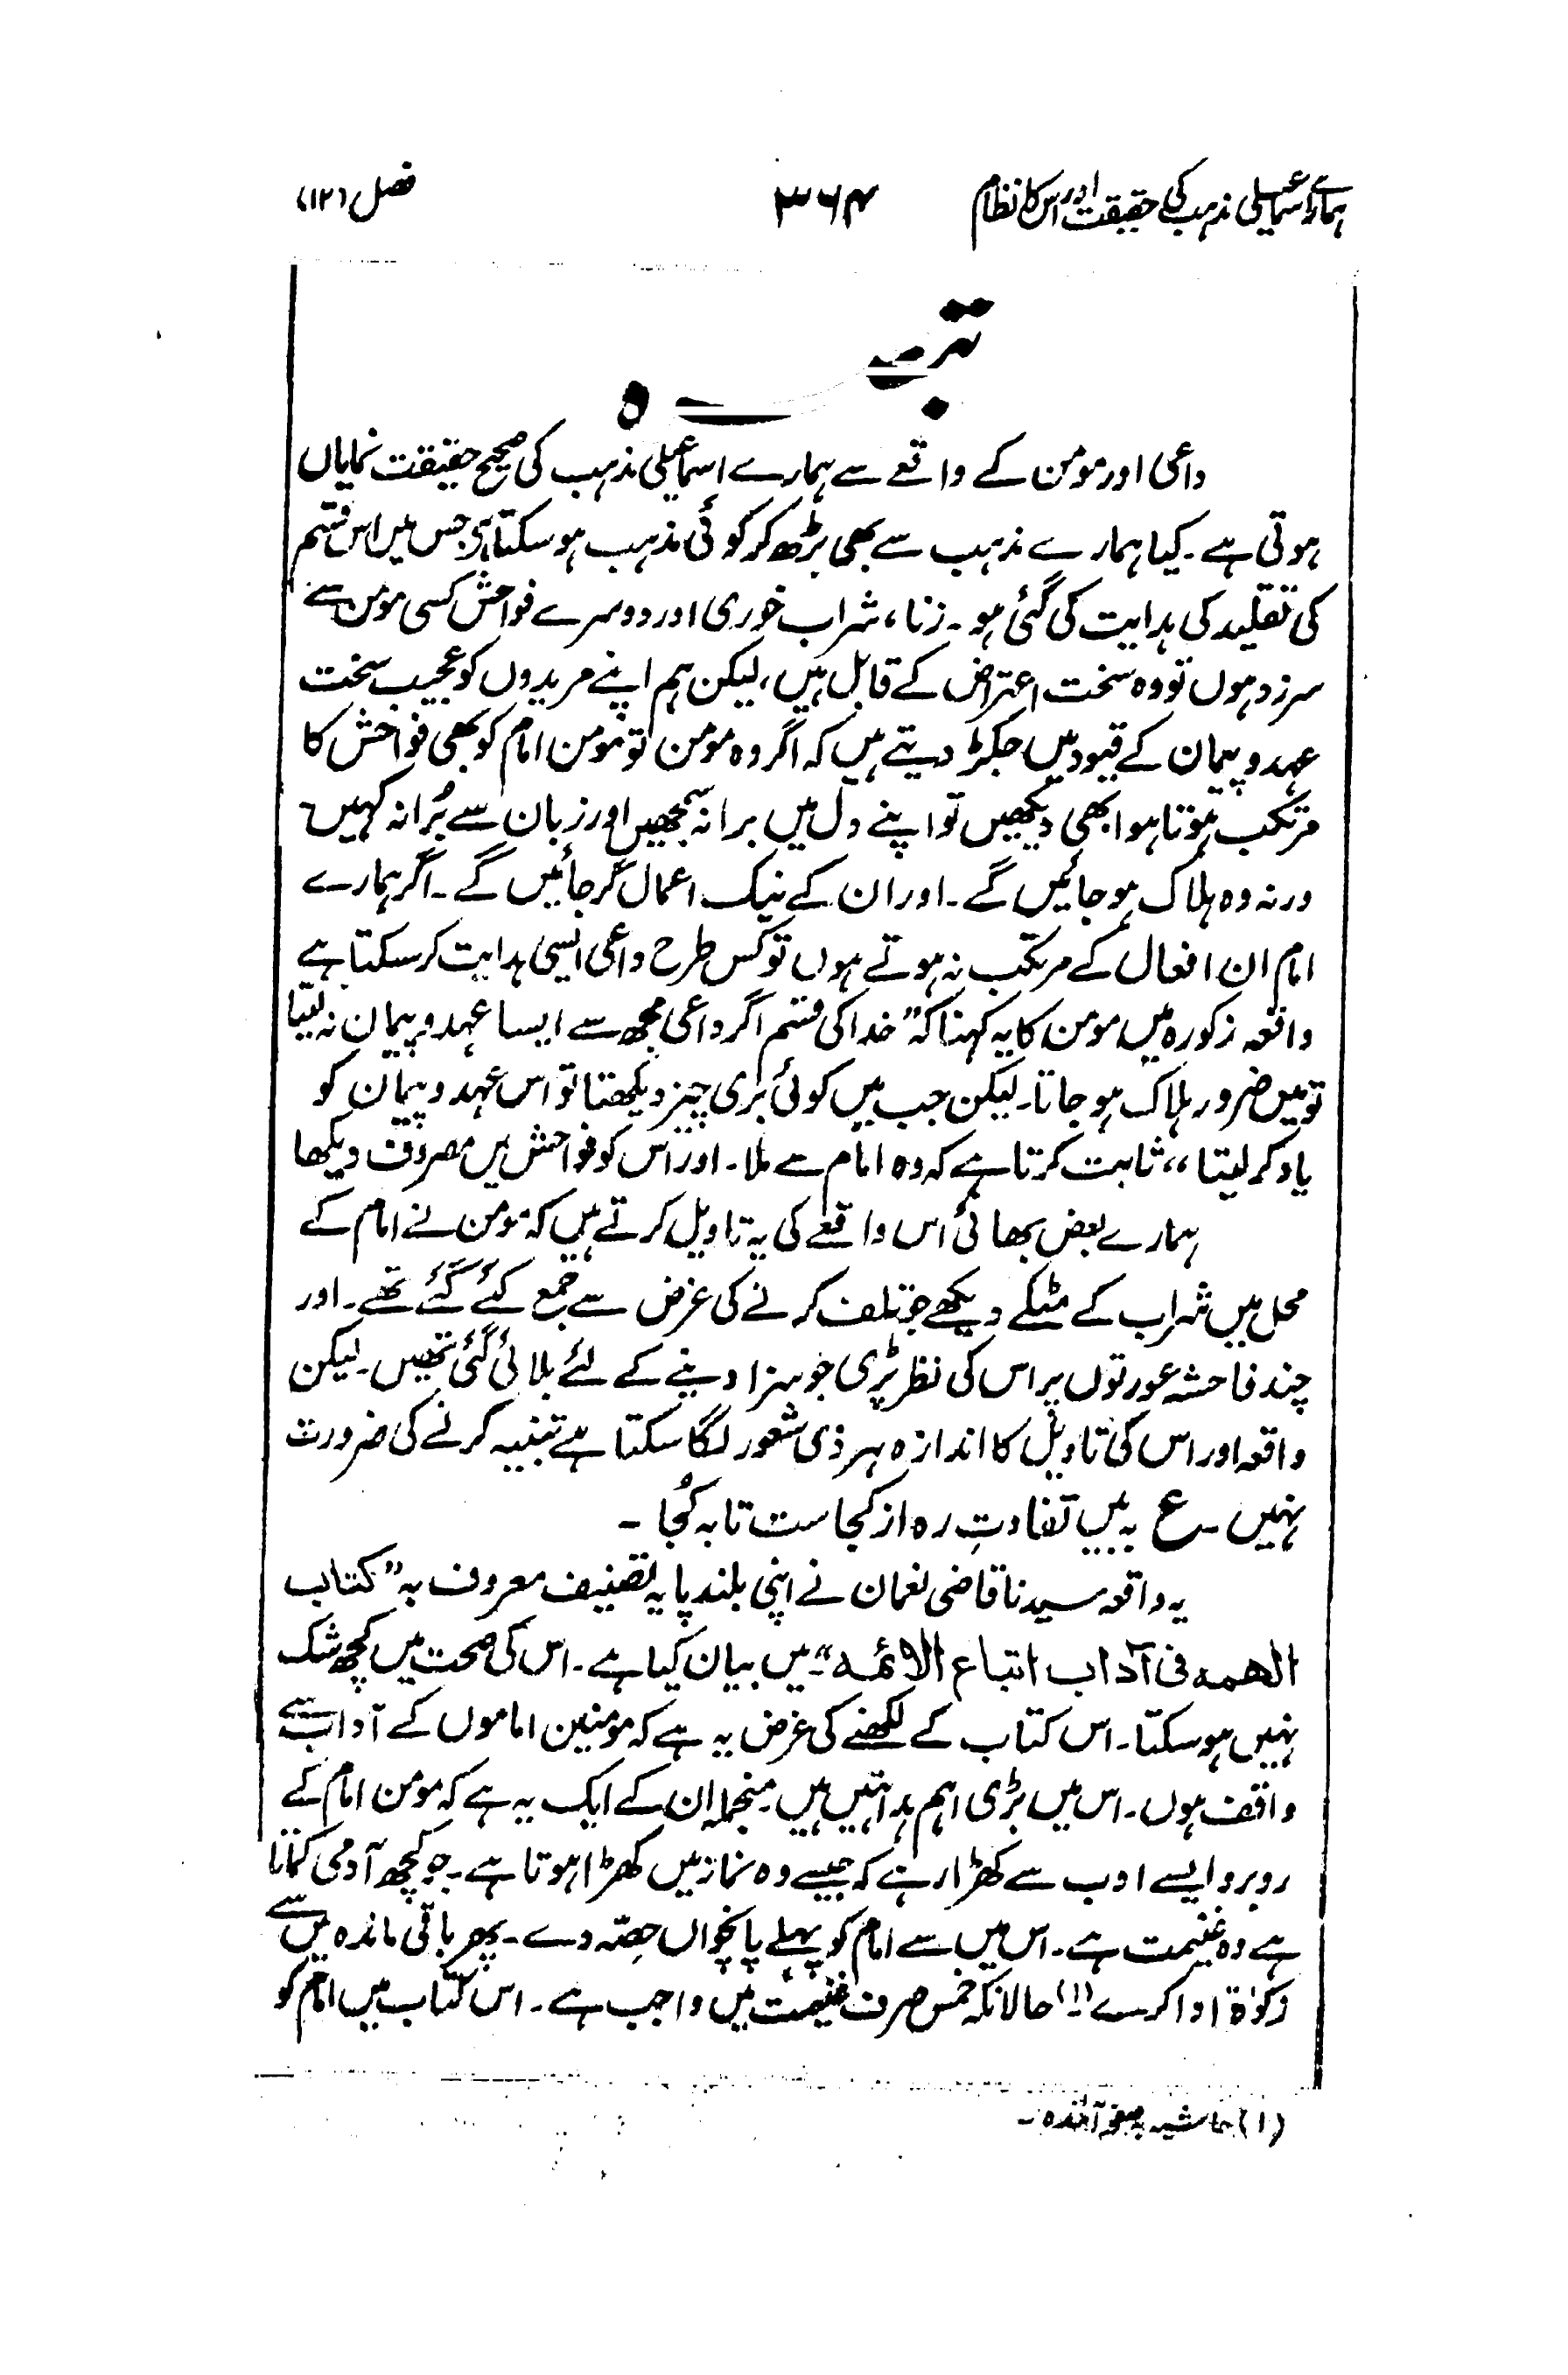 ہمارے اسماعیلی مذہب کی حقیقت اور اس کا نظام ۳۶۴ فصل (۱۲)
تبصرہ
داعی اور مومن کے واقعے سے ہمارے اسماعیلی مذہب کی صحیح حقیقت نمایاں
ہوتی ہے ۔ کیا ہمارے مذہب سے بھی بڑھ کر کوئی مذہب ہو سکتا ہی جس میں اس قسم
کی تقلید کی ہدایت کی گئی ہو ۔ زنا، شراب خوری اور دوسرے فواحش کسی مومن سے
سرزد ہوں تو وہ سخت اعتراض کے قابل ہیں، لیکن ہم اپنے مریدوں کو عجیب سخت
عہد و پیمان کے قیود میں جکڑ دیتے ہیں کہ اگر وہ مومن تو مومن امام کو بھی فواحش کا
مرتکب ہوتا ہوا بھی دیکھیں تو اپنے دل میں برا نہ سمجھیں اور زبان سے بُرا نہ کہیں
ورنہ وہ ہلاک ہو جائیں گے ۔ اور ان کے نیک اعمال گر جائیں گے ۔ اگر ہمارے
امام ان افعال کے مرتکب نہ ہوتے ہوں تو کس طرح داعی ایسی ہدایت کر سکتا ہے
واقعہ زکورہ میں مومن کا یہ کہنا کہ ”خدا کی قسم اگر داعی مجھ سے ایسا عہد و پیمان نہ لیتا
تو میں ضرور ہلاک ہو جاتا ۔ لیکن جب میں کوئی بُری چیز دیکھتا تو اس عہد و پیمان کو
یاد کر لیتا،، ثابت کرتا ہے کہ وہ امام سے ملا ۔ اور اس کو فواحش میں مصروف دیکھا
ہمارے بعض بھائی اس واقعے کی یہ تاویل کرتے ہیں کہ مومن نے امام کے
محل میں شراب کے مٹکے دیکھے جو تلف کرنے کی غرض سے جمع کئے گئے تھے ۔ اور
چند فاحشہ عورتوں پر اس کی نظر پڑی جو سزا دینے کے لئے بلائی گئی تھیں ۔ لیکن
واقعہ اور اس کی تاویل کا اندازہ ہر ذی شعور لگا سکتا ہے تنبیہ کرنے کی ضرورت
نہیں ۔ ع بہ بیں تفاوتِ رہ از کجاست تا بہ کُجا ۔
یہ واقعہ سیدنا قاضی نعمان نے اپنی بلند پایہ تصنیف معروف بہ ”کتاب
الھمہ فی آداب اتباع الائمہ“ میں بیان کیا ہے ۔ اس کی صحت میں کچھ شک
نہیں ہو سکتا ۔ اس کتاب کے لکھنے کی غرض یہ ہے کہ مومنین اماموں کے آداب سے
واقف ہوں ۔ اس میں بڑی اہم ہدائتیں ہیں ۔ منجملہ ان کے ایک یہ ہے کہ مومن امام کے
روبرو ایسے ادب سے کھڑا رہے کہ جیسے وہ نماز میں کھڑا ہوتا ہے ۔ جو کچھ آدمی کماتا
ہے وہ غنیمت ہے ۔ اس میں سے امام کو پہلے پانچواں حصّہ دے ۔ پھر باقی ماندہ میں سے
زکوٰۃ ادا کرے (۱) حالانکہ خمس صرف غنیمت میں واجب ہے ۔ اس کتاب میں امام کو
(۱) حاشیہ بر صفحہ آئندہ ۔